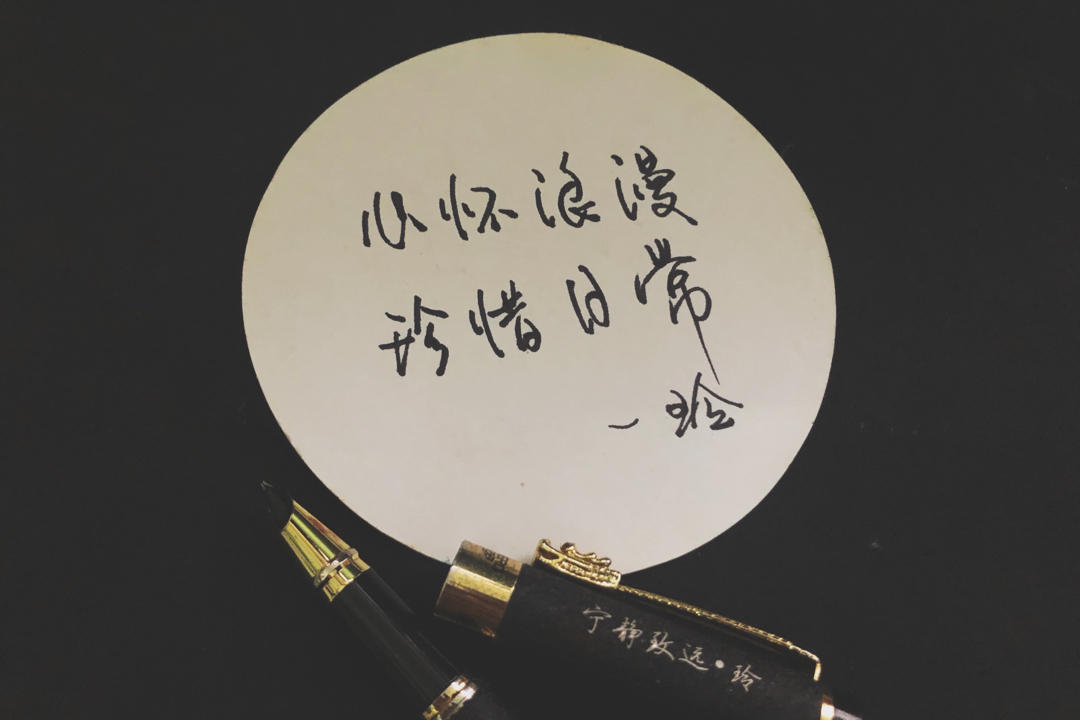 心怀浪漫
珍惜日常
－玲
宁静致远·玲